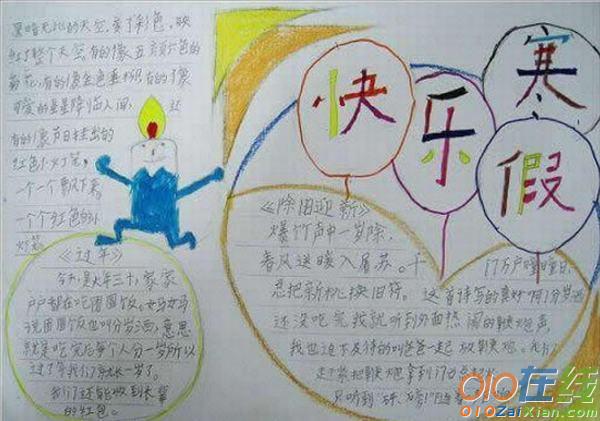 黑暗无比的天空,变了彩色。映
红了整个天空有的像五颜六色的
菊花,有的像金色垂柳有的像
可爱的星星降临人间,还
有的像 挂出的
红色小灯笼,
一个一个飘下来
一个个红色的小
灯笼
快乐寒假
《过年》
今天是大年三十,家家
户户都在吃团圆饭。妈妈
说团圆饭也叫分岁酒,意思
就是吃完后每个人分一岁所以
过了年我们每长一岁了。
我们还能收到长辈
的红包。
《除旧迎新》
爆竹声中一岁除,
春风送暖入屠苏。千
门万户曈曈日,
总把新桃换旧符。这首诗写的真好
还没吃完我就听到外面热闹的鞭炮声
我也迫不及待的叫爸爸一起放鞭炮。我们
赶紧把鞭炮拿到门口
只听到“砰
010在线
010ZaiXian.com